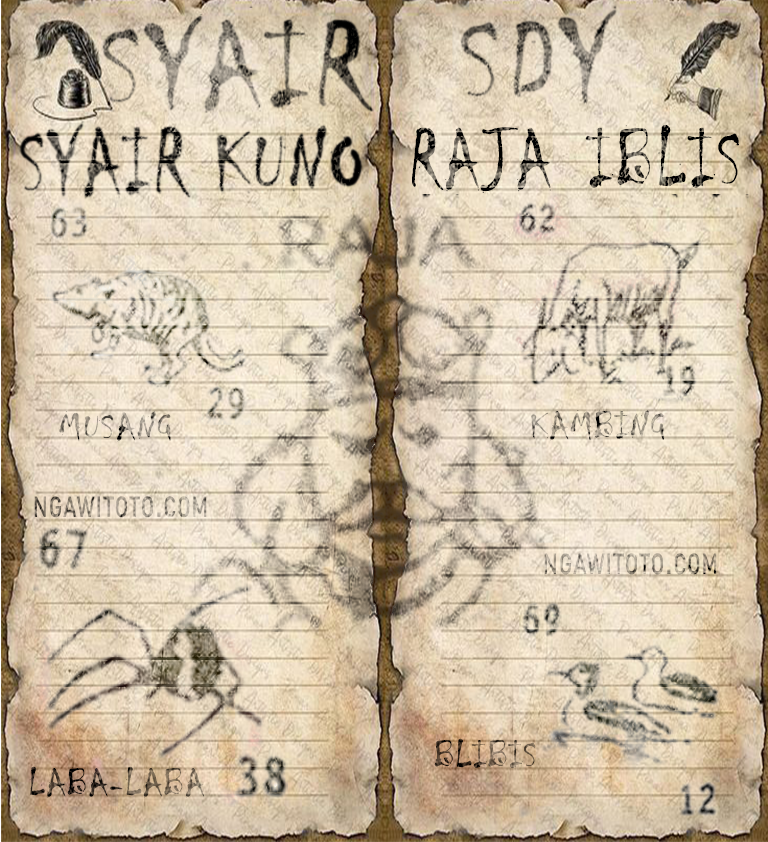 SYAIR
SYAIR KUNO
63
29
MUSANG
NGAWITOTO.COM
67
LABA-LABA 38
RAJA
SDY
RAJA IBLIS
62
19
KAMBING
NGAWITOTO.COM
69
BLIBIS
12